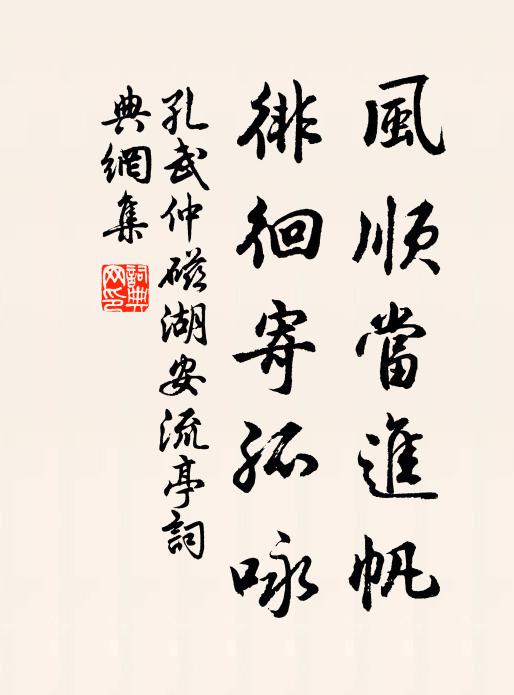 風順當進帆
徘徊寄孤咏
孔武仲磁湖安流亭詞
典網集
詞典
网印